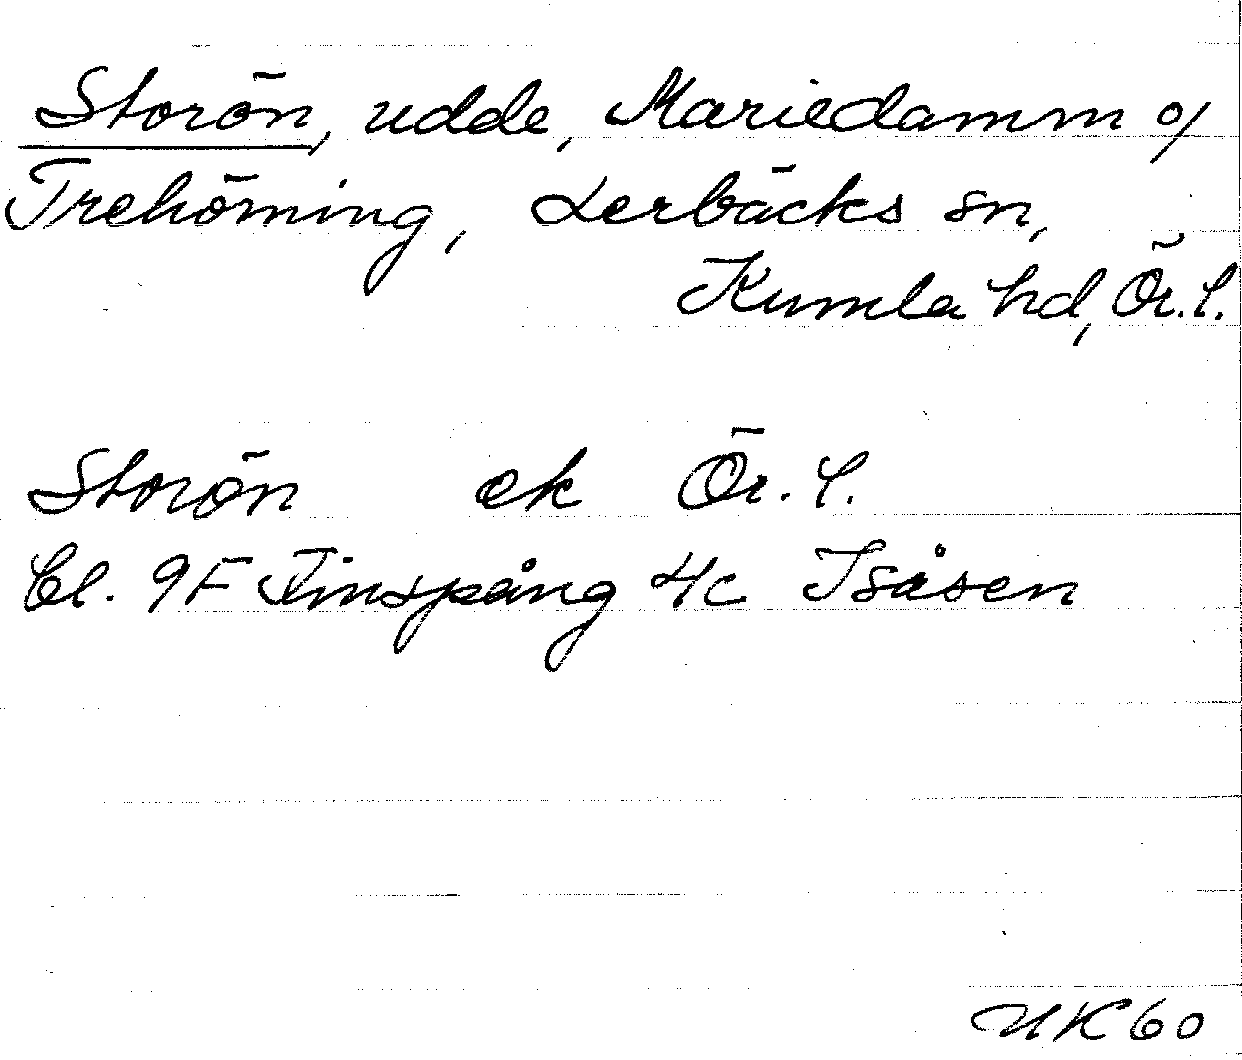 Storön, udde, Mariedamm o/
Trehörning, Lerbäcks sn,
Kumla hd, Ör. l.
Storön ek Ör. l.
Bl. 9F Finspång 4c Isåsen
UK60